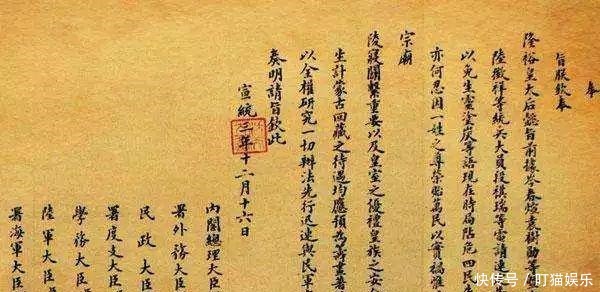 奉
旨朕欽奉
隆裕皇太后懿旨前據岑春煊袁樹勳等
陸徵祥等統兵大員段祺瑞等電請速
以免生靈塗炭等語現在時局阽危四民
亦何忍因一姓之尊榮貽萬民以實禍惟
宗廟
陵寢關繫重要以及皇室之優禮皇族之安
生計蒙古回藏之待遇均應預為籌畫著
以全權研究一切辦法先行迅速與民軍
奏明請旨欽此
宣統三年十二月十六日
內閣總理大臣
署外務大臣
民政大臣
署度支大臣
學務大臣
陸軍大臣
署海軍大臣
快传号 / 盯猫娱乐